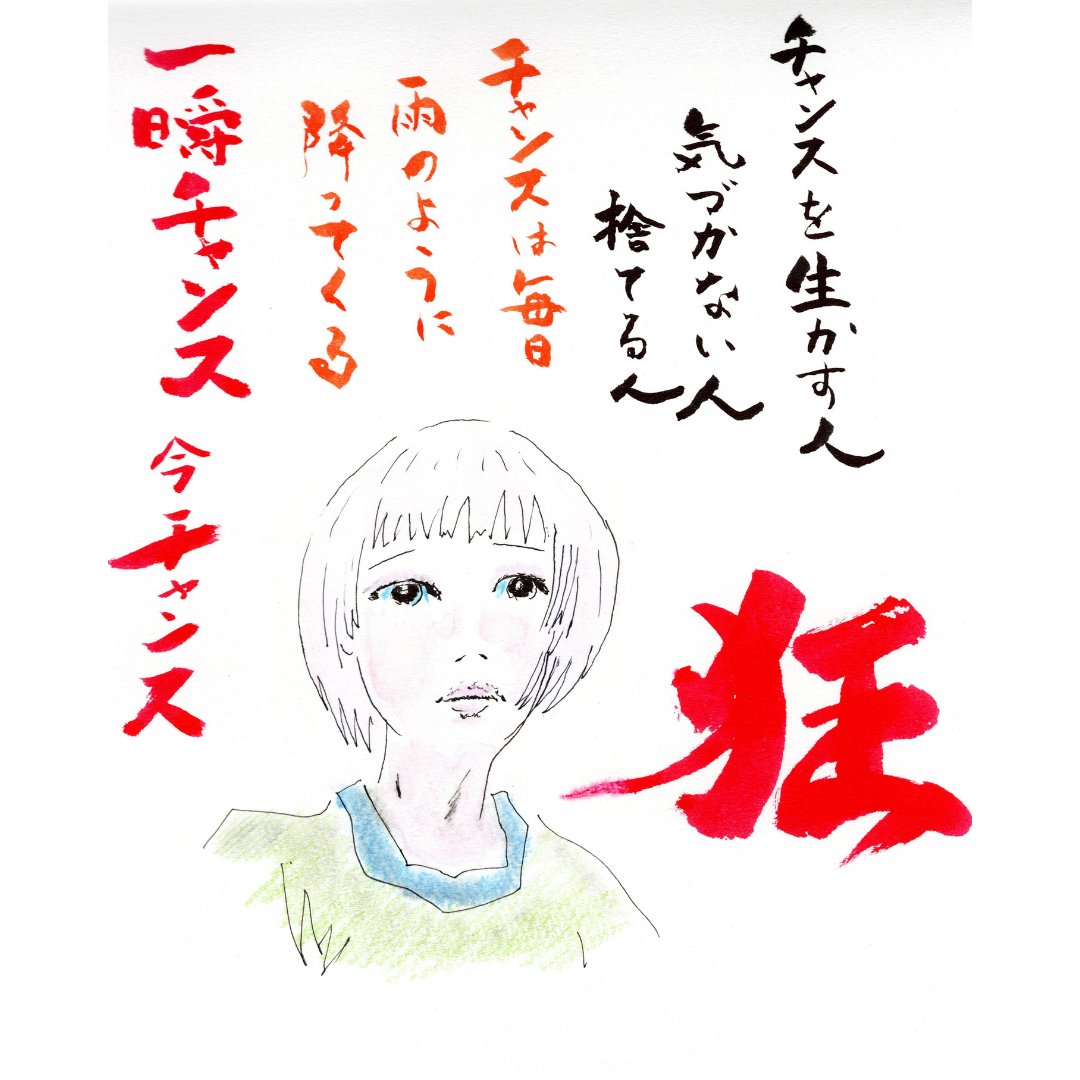 チャンスを生かす人
気づかない人
捨てる人
チャンスは毎日
雨のように
降ってくる
一瞬チャンス 今チャンス
狂